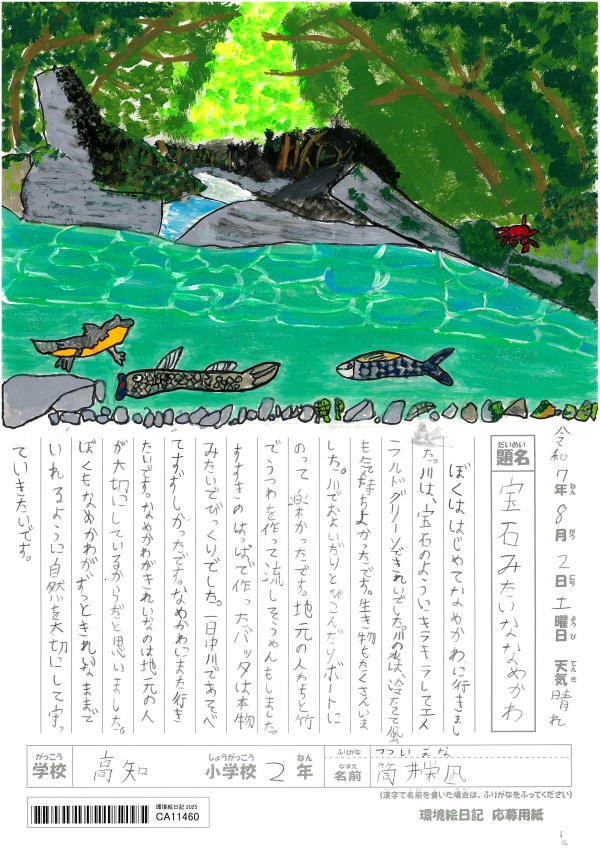 令和7年8月2日土曜日 天気 晴れ
ねん がつ にち ようび てんき
だいめい
題名
宝石みたいななめかわ
ぼくははじめてなめかわに行きまし
た。川は、宝石のようにキラキラしてエメ
ラルドグリーンできれいでした。川の水は、冷たくて風
も気持ちよかったです。生き物もたくさんいま
した。川でおよいだりとびこんだりボートに
のって楽しかったです。地元の人たちと竹
でうつわを作って流しそうめんもしました。
すすきのはっぱで作ったバッタは本物
みたいでびっくりしました。一日中川であそべ
てすずしかったです。なめかわにまた行き
たいです。なめかわがきれいなのは地元の人
が大切にしているからだと思いました。
ぼくもなめかわがずっときれいなままで
いれるように自然を大切にして守っ
ていきたいです。
がっこう しょうがっこう ねん ふりがな つつい えな
学校 高知 小学校 2年 なまえ 名前 筒井栄凪
(漢字で名前を書いた場合は、ふりがなをふってください)
環境絵日記 2025
CA11460
環境絵日記 応募用紙